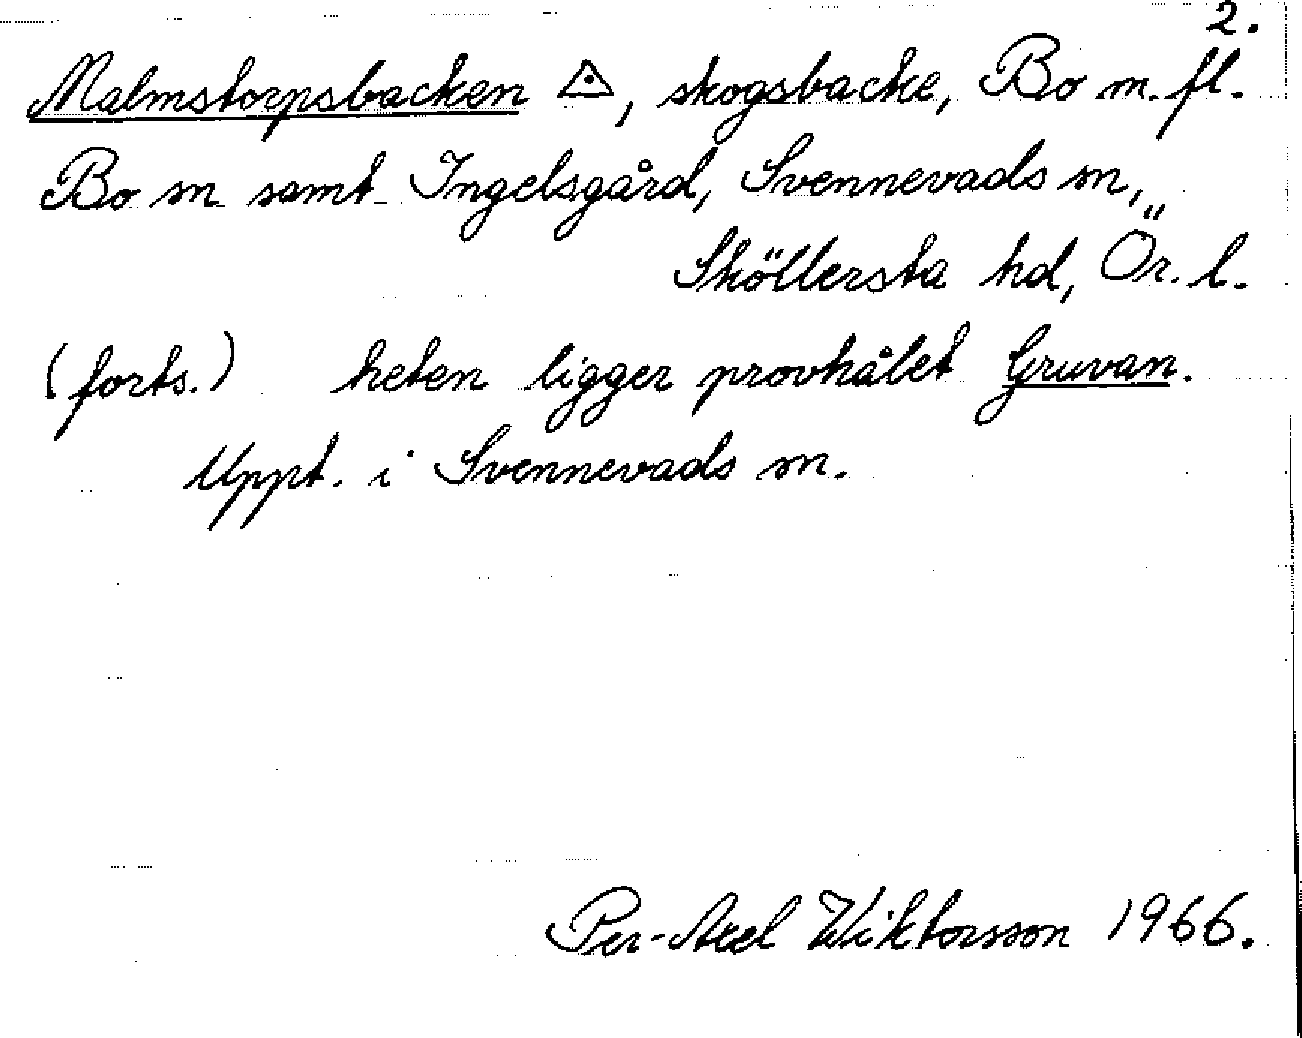 2.
Malmstorpsbacken ⟁, skogsbacke, Bo m.fl.
Bo sn samt Ingelsgård, Svennevads sn,
Sköllersta hd, Ör. l.
(forts.) heten ligger provhålet Gruvan.
Uppt. i Svennevads sn.
Per-Axel Wiktorsson 1966.